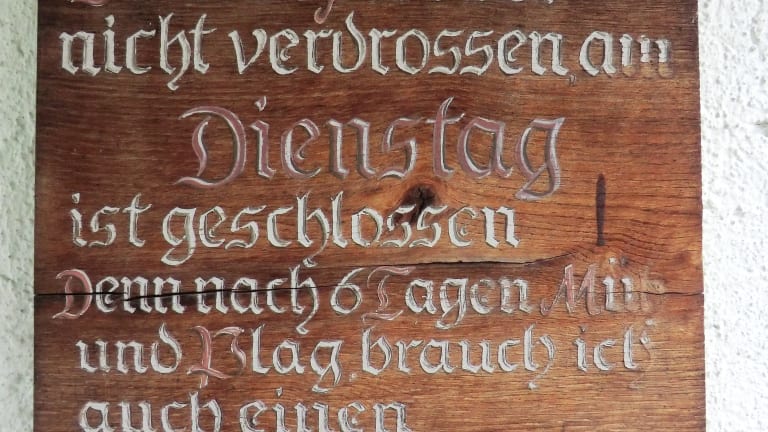 nicht verdrossen, am
Dienstag
ist geschlossen
Denn nach 6 Tagen Müh
und Plag, brauch ich
auch einen